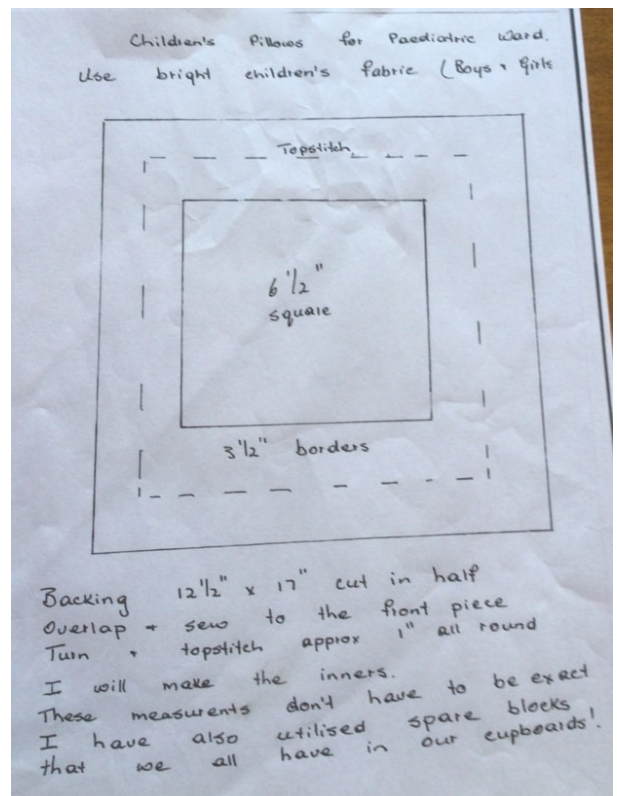 Children's Pillows for Paediatric Ward.
Use bright children's fabric (Boys + Girls
Topstitch
6 1/2"
square
3 1/2" borders
Backing 12 1/2" x 17" cut in half
Overlap + sew to the front piece
Turn + topstitch approx 1" all round
I will make the inners.
These measurents don't have to be exact
I have also utilised spare blocks
that we all have in our cupboards!